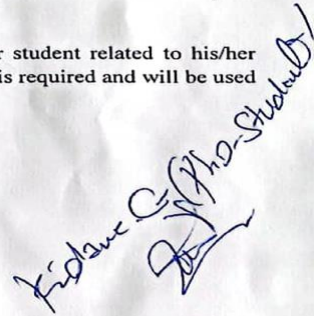 r student related to his/her
is required and will be used
Kidane G (PhD-Student)